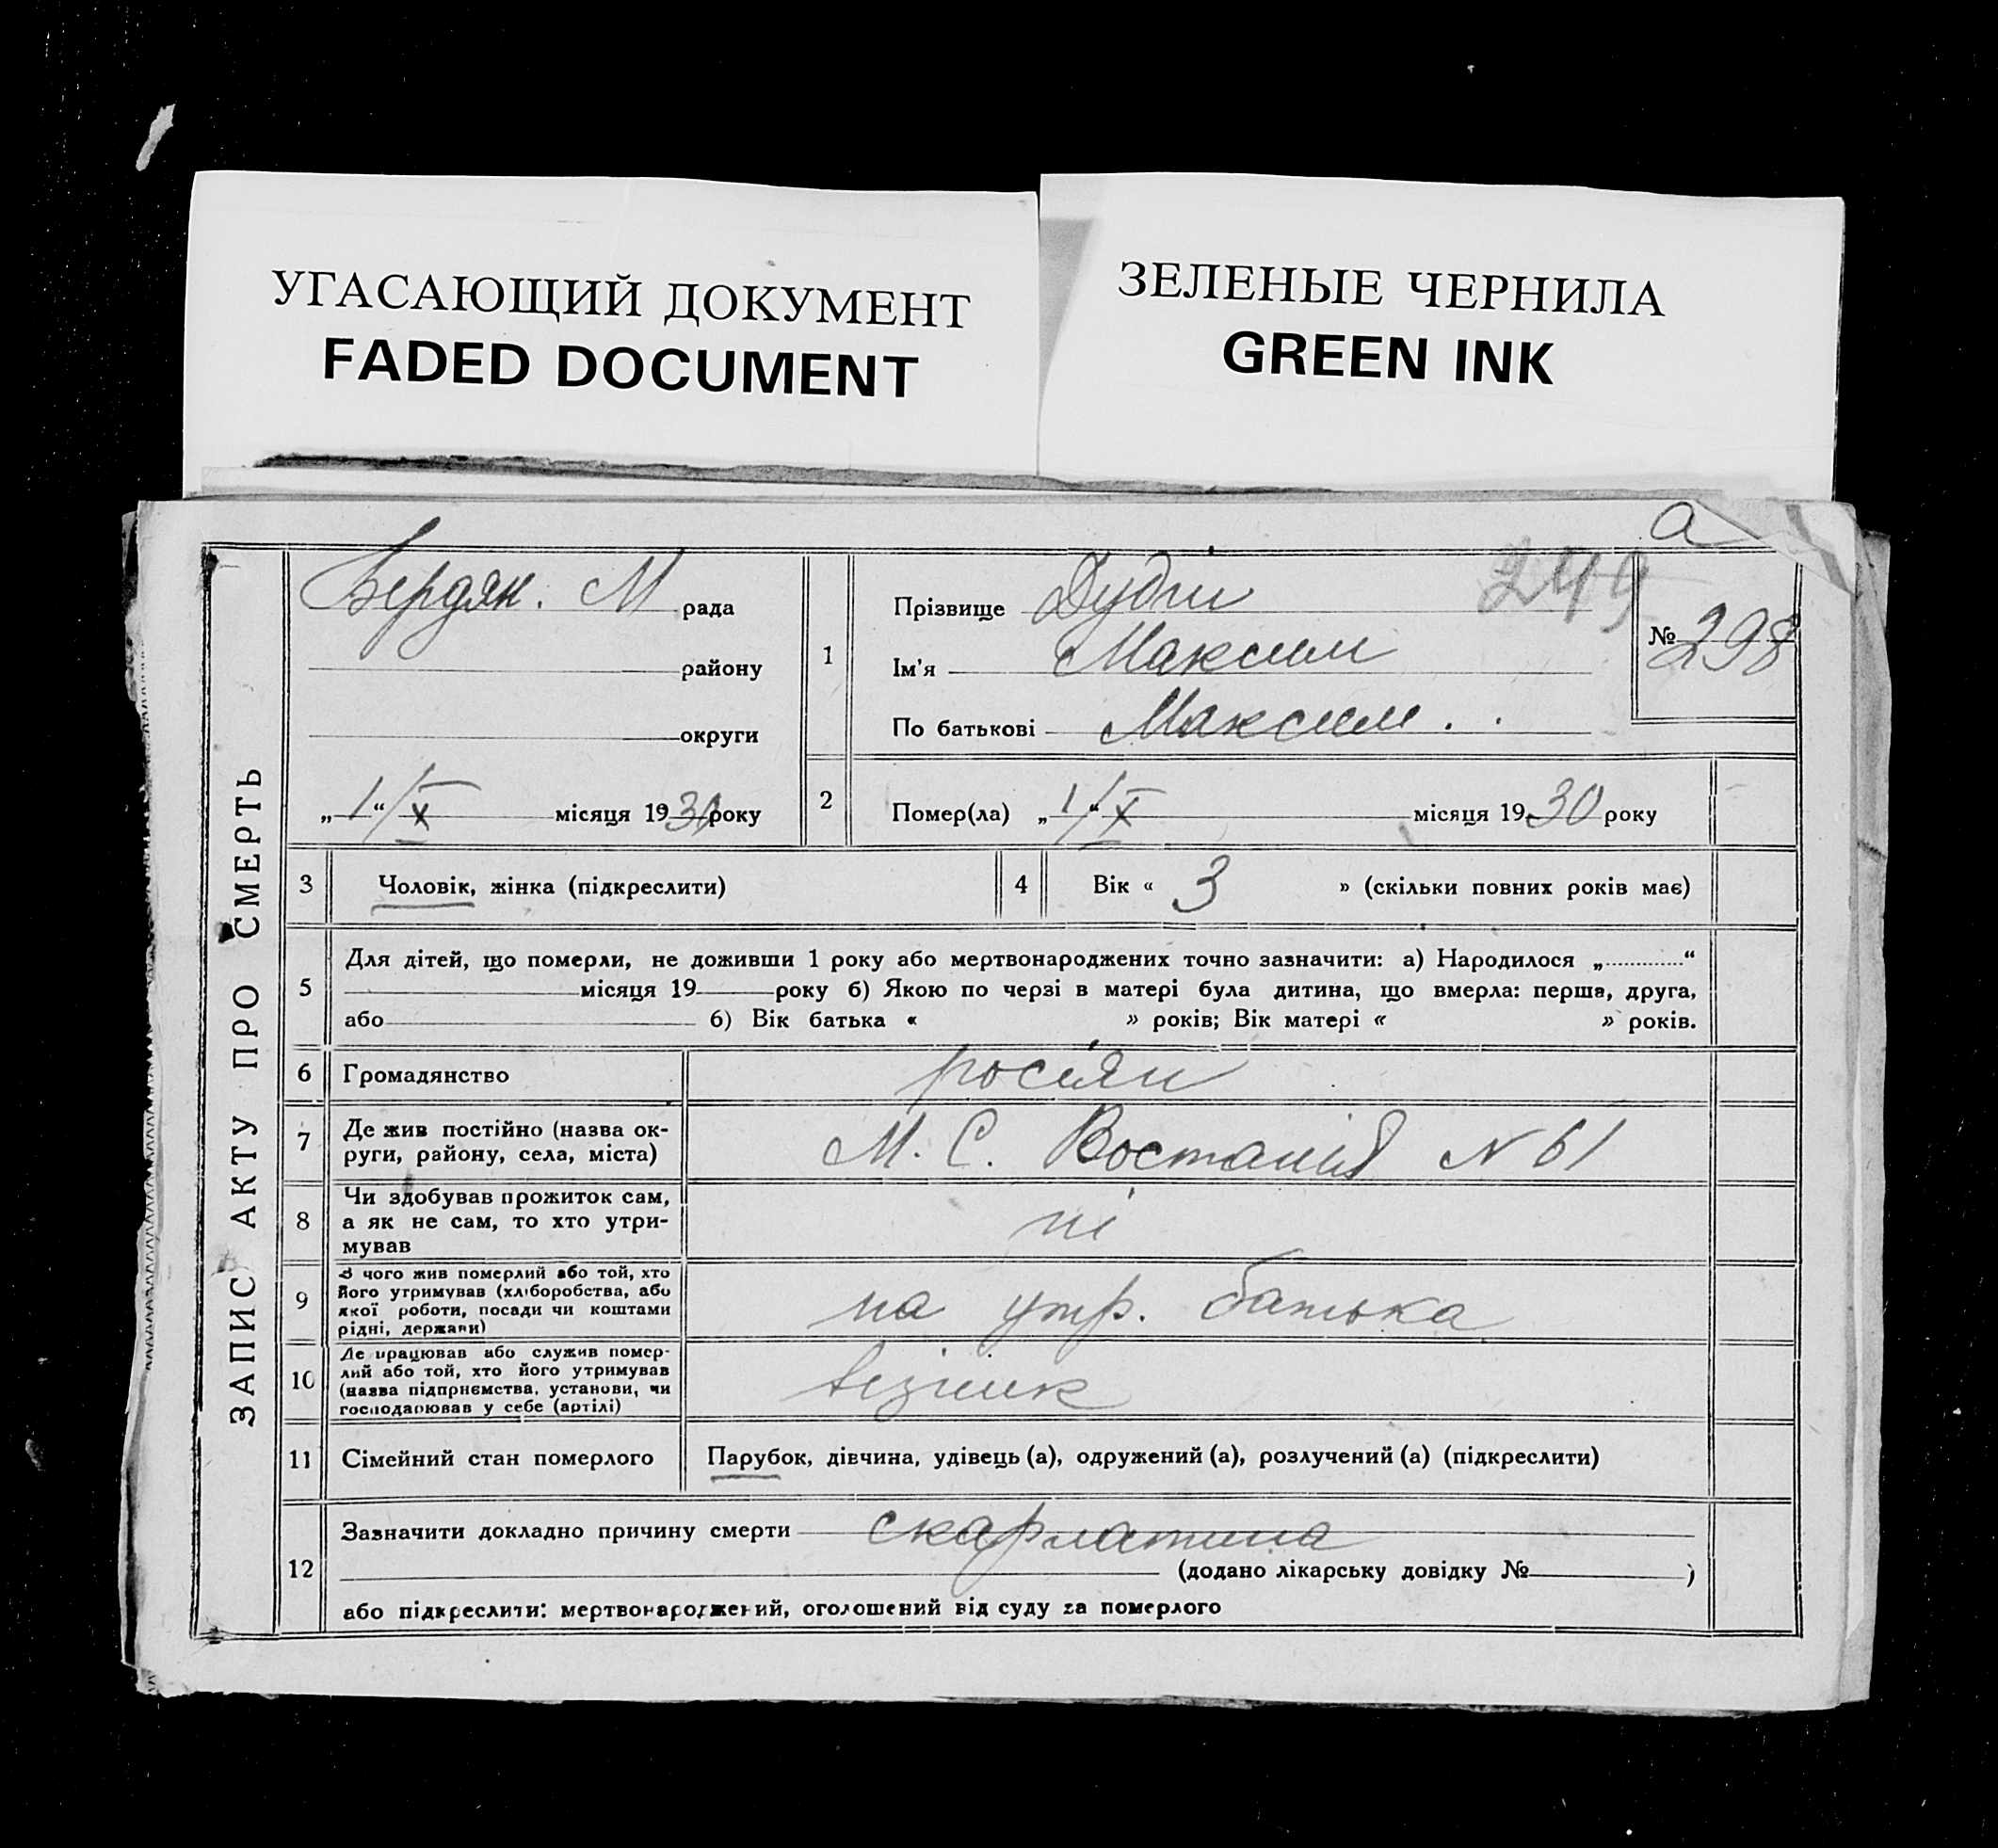 УГАСАЮЩИЙ ДОКУМЕНТ
FADED DOCUMENT
ЗЕЛЕНЫЕ ЧЕРНИЛА
GREEN INK
а
249
ЗАПИС АКТУ ПРО СМЕРТЬ
Бердян. М рада
району
округи
„1“/X місяця 1930 року
1
Прізвище
Ім'я Максим
По батькові Максим.
№ 298
2
Помер(ла) „1“/X місяця 1930 року
3 Чоловік, жінка (підкреслити)
4 Вік « 3 » (скільки повних років має)
5
Для дітей, що померли, не доживши 1 року або мертвонароджених точно зазначити: а) Народилося „ “
місяця 19 року б) Якою по черзі в матері була дитина, що вмерла: перша, друга,
або б) Вік батька « » років; Вік матері « » років.
6 Громадянство росіян
7
Де жив постійно (назва ок-
руги, району, села, міста)
М. С. Востання N 61
8
Чи здобував прожиток сам,
а як не сам, то хто утри-
мував
ні
9
З чого жив померлий або той, хто
його утримував (хліборобства, або
якої роботи, посади чи коштами
рідні, держави)
на утр. батька
10
Де працював або служив помер-
лий або той, хто його утримував
(назва підприємства, установи, чи
господарював у себе (артілі)
візник
11 Сімейний стан померлого Парубок, дівчина, удівець (а), одружений (а), розлучений (а) (підкреслити)
12
Зазначити докладно причину смерти скарлатина
(додано лікарську довідку № )
або підкреслити: мертвонароджений, оголошений від суду за померлого